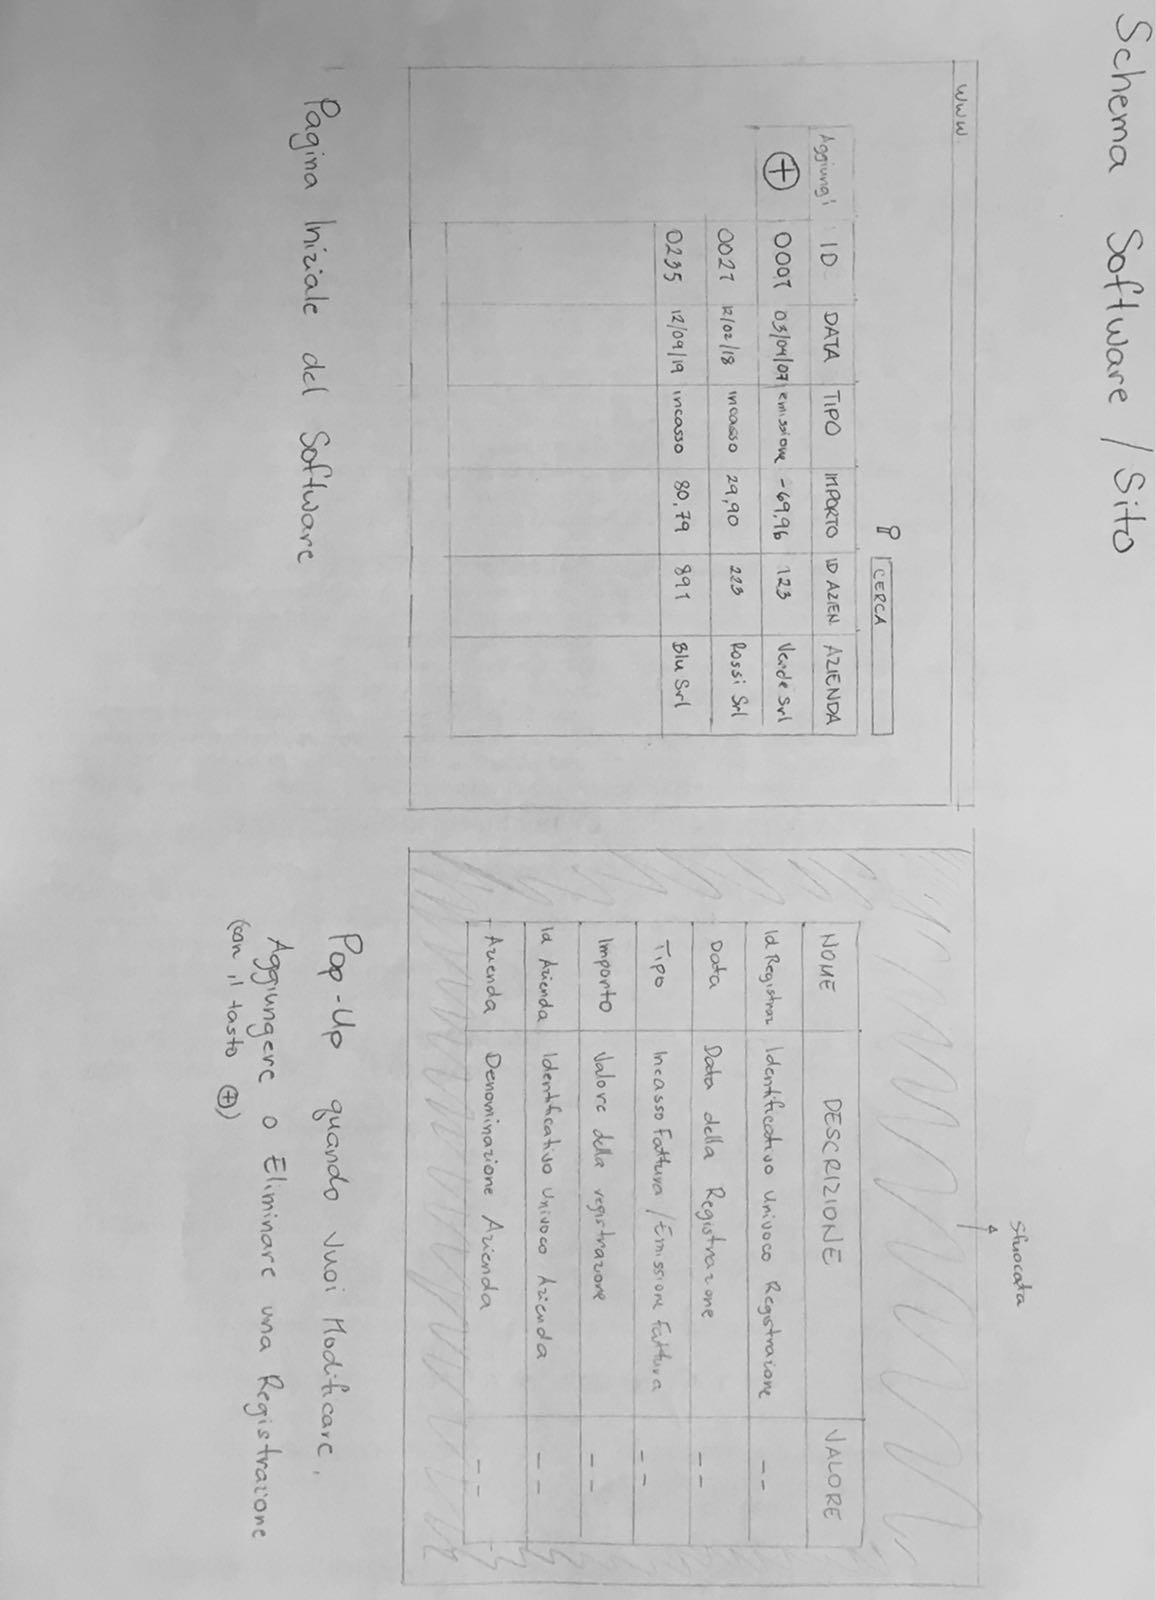 Schema Software / Sito
www.
CERCA
Aggiungi ID DATA TIPO IMPORTO ID AZIEN. AZIENDA
+ 03/04/07 emissione -69,96 123 Verde Srl
0027 12/02/18 incasso 29,90 223 Rossi Srl
0235 12/09/19 incasso 80,79 891 Blu Srl
Pagina Iniziale del Software
Sfuocata
NOME DESCRIZIONE VALORE
Id Registraz Identificativo Univoco Registrazione --
Data Data della Registrazione --
Tipo Incasso Fattura / Emissione Fattura --
Importo Valore della registrazione --
Id Azienda Identificativo Univoco Azienda --
Azienda Denominazione Azienda --
Pop-Up quando vuoi Modificare,
Aggiungere o Eliminare una Registrazione
(con il tasto +)